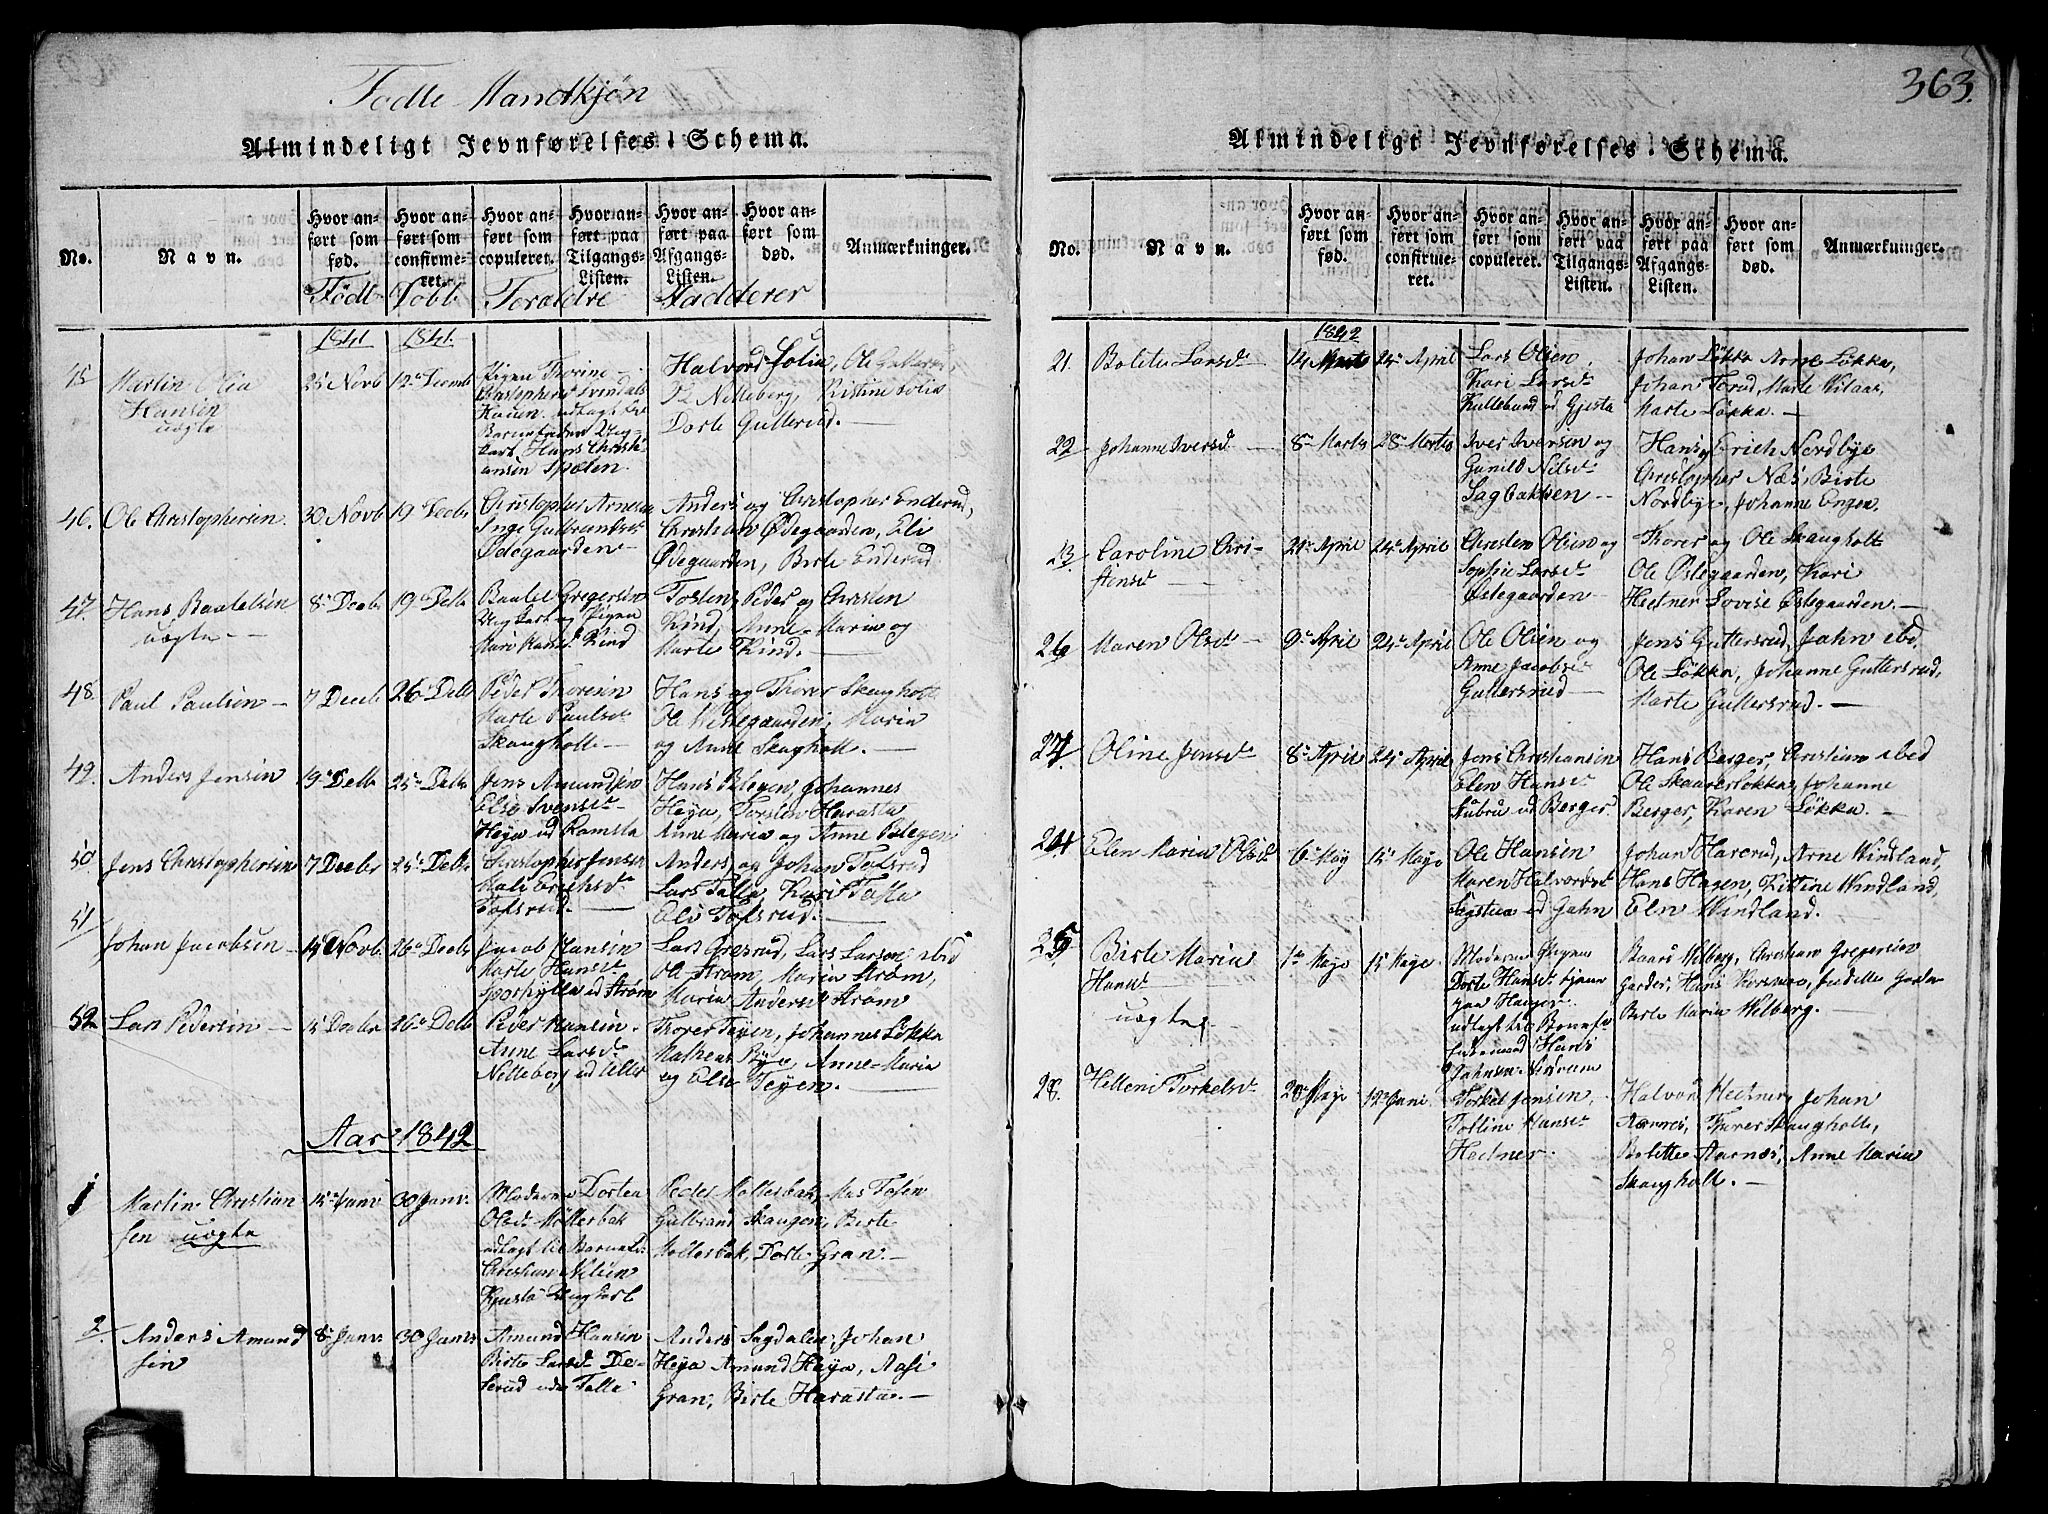 Fødte Mandkjøn
Almindeligt Jevnførelses-Schema.
No.
Navn.
Hvor anført som fød.
Hvor anført som confirmeret.
Hvor anført som copuleret.
Hvor anført paa Tilgangs-Listen.
Hvor anført paa Afgangs-Listen.
Hvor anført som død.
Anmærkninger.
Födt Döbt Foraldre Fadderer
1841 1841.
Martin Olia
Hansen
uægte
25 Novb 12 Decemb
Pigen Thorine
Christophersd Svendals
Hans Christi-
ansen
Halvord Solia, Ole Gutterud,
Nitteberg, Kistine Solia
Dorte Gutterud.
46. Ole Christophersen. 30 Novb 19 Decbr
Christopher Arnesen
Inge Gulbrandsd
Ødegaarden
Anders og Christopher Enderud,
Christian Ødegaarden, Eli
Ødegaarden, Birte Enderud.
47. Hans Baatelsen
uægte
8 Decbr 19 Decbr
Baatel Gregersen
Ungkarl og Pigen
Mari Hansd Kind
Tosten, Peder og Christen
Kind, Anne Maria og
Marte Kind.
48. Paul Paulsen 7 Decbr 26 Decbr
Peder Thoresen
Marte Paulsd
Skaugholt
Hans og Thorer Skaugholt
Ole Westegaarden, Maria
og Anne Skaugholt.
49. Anders Jensen 19 Decbr 25 Decbr
Jens Amundsen
Else Svensd
Heya ud Ramsta
Hans Ballegen, Johannes
Heya, Torsten Harasta
Anne Maria og Anne
50. Jens Christophersen 7 Decbr 25 Decbr
Christopher Jensen
Mali Erichsd
Tofsrud.
Anders og Johan Tofsrud
Lars Talla, Kari Tofta
Oli Tofsrud.
51
Johan Jacobsen 14 Novb. 26 Decbr
Jacob Hansen
Marte Hansd
ud Strøm
Lars Gresrud, Lars Larsen ibid
Ole Strøm, Maria Strøm,
Maria Andersd Strøm
52 Lars Pedersen 15 Decbr 26 Decbr
Peder Hansen.
Anne Larsd
Nitteberg ud Teller
Thorer Teyen, Johannes Løkka
Matheas Bye, Anne Maria
og Else Teyen.
Aar 1842
1
Martin Christian
sen uægte
15 Janv 30 Janv.
Moderen Dortea
Olsd Møllerbak
udlagt til Barnef.
Christian Nilsen
Kjusta Ungkarl
Peder Møllerbak, Mas Tosen
Gulbrand Skaugen, Birte
Møllerbak, Dorte Gran.
2. Anders Amund
sen
8 Janv. 30 Janv
Amund Hansen
Birte Larsd De-
serud under Talla
Anders Sagdalen, Johan
Heya Amund Heya, Aase
Gran, Birte Harasta.
363.
Almindeligt Jevnførelses-Schema.
No.
Navn.
Hvor anført som fød.
Hvor anført som confirmeret.
Hvor anført som copuleret.
Hvor anført paa Tilgangs-Listen.
Hvor anført paa Afgangs-Listen.
Hvor anført som død.
Anmærkninger.
1842
21. Bolete Larsd 14 Marts 24 April
Lars Olsen
Kari Larsd
Kullebund ud Gjesta
Johan Løkka Arne Løkka,
Johan Torud, Marte Wilaas,
Marte Løkka.
22 Johanne Iversd 8 Marts 28 Martes
Iver Iversen og
Gunild Nilsd
Sagbakken
Hans, Erich Nordbye
Christopher Næs, Birte
Nordbye, Johanne Engen.
23. Caroline Chri-
stensd
21 April 24 April
Christen Olsen og
Sophie Larsd
Østegaarden
Thorer og Ole Skaugholt
Ole Østegaarden, Kari
Hectner Lovise Østegaarden.
26 Maren Olsd 9 April 24 April
Ole Olsen og
Anne Jacobsd
Guttersrud
Jens Guttersrud, John ibd.
Ole Løkka, Johanne Guttersrud,
Marte Guttersrud.
27. Oline Jensd 8 April 24 April
Jens Christiansen
Elen Hansd
Stubru ud Berger
Hans Berger, Christian ibid
Ole Skaarerløkka, Johanne
Berger, Karen Løkka.
24 Elen Maria Olsd 6 May 15 Mayo
Ole Hansen
Maren Halvorsd
ud Jahn
Johan Harerud, Arne Windland,
Hans Hagen, Kistine Windland,
Eln Windland.
25 Birte Maria
Hansd
uægte
1 Mayo 15 Mayo
Moderen Pigen
Dorte Hansd tjener
paa Haugen
udlagt til Barnefa
Hans
Johnsen
Baard Wilberg, Christian Gregersen
Garder, Hans
Birte Maria Wilberg.
28. Hellene Torkelsd 20 Mayo 12 Juni.
Torkel Jensen,
Tolline Hansd
Hectner.
Halvor Hectner, Johan
Aarnes, Thorer Skaugholt,
Bolette Aarnes, Anne Maria
Skaugholt.